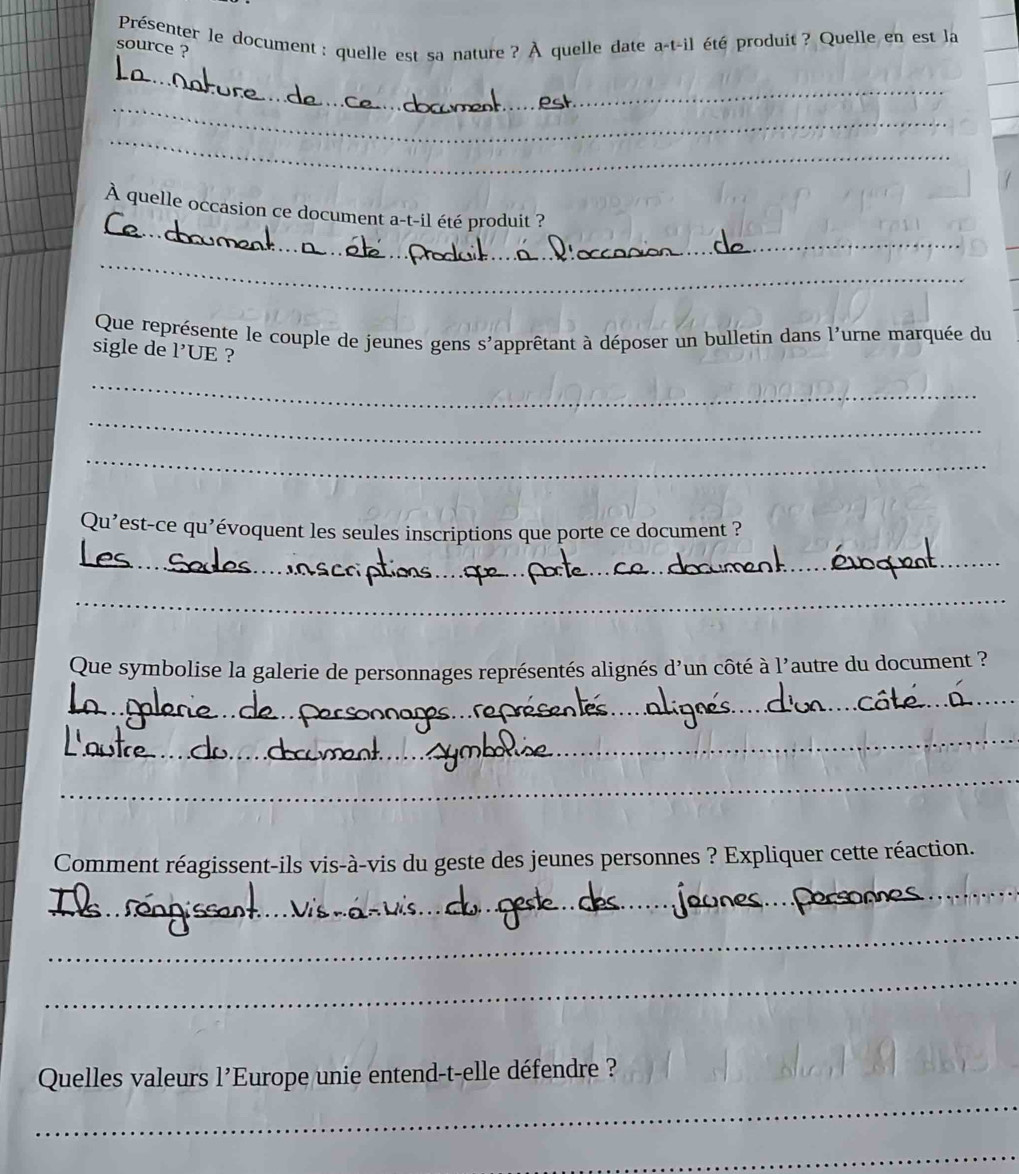 Présenter le document : quelle est sa nature ? À quelle date a-t-il été produit ? Quelle en est la
source ?
La nature de ce document est
À quelle occasion ce document a-t-il été produit ?
Ce document a été produit à l'occasion de
Que représente le couple de jeunes gens s'apprêtant à déposer un bulletin dans l'urne marquée du
sigle de l'UE ?
Qu'est-ce qu'évoquent les seules inscriptions que porte ce document ?
Les seules inscriptions que porte ce document évoquent
Que symbolise la galerie de personnages représentés alignés d'un côté à l'autre du document ?
La galerie de personnages représentés alignés d'un côté à
L'autre du document symbolise
Comment réagissent-ils vis-à-vis du geste des jeunes personnes ? Expliquer cette réaction.
Ils réagissent vis-à-vis du geste des jeunes personnes
Quelles valeurs l'Europe unie entend-t-elle défendre ?